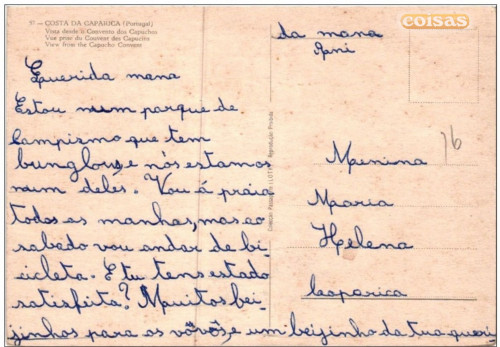 5 — COSTA DA CAPARICA (Portugal)
Vista desde o Convento dos Capuchos
Vue prise du Couvent des Capuchos
View from the Capucho Convent
coisas
da mana
Querida mana
Estou num parque de
campismo que tem
bunglous, e nós estamos
num deles. Vou á praia
todas as manhas, mas ao
sabedo vou andar de bi-
cicleta. E tu tens estado
satisfeita? Muitos bei-
jinhos para os vôvôs, e um beijinho da tua queri-
Menina
Maria
Helena
Caparica
16
Reprodução Proibida